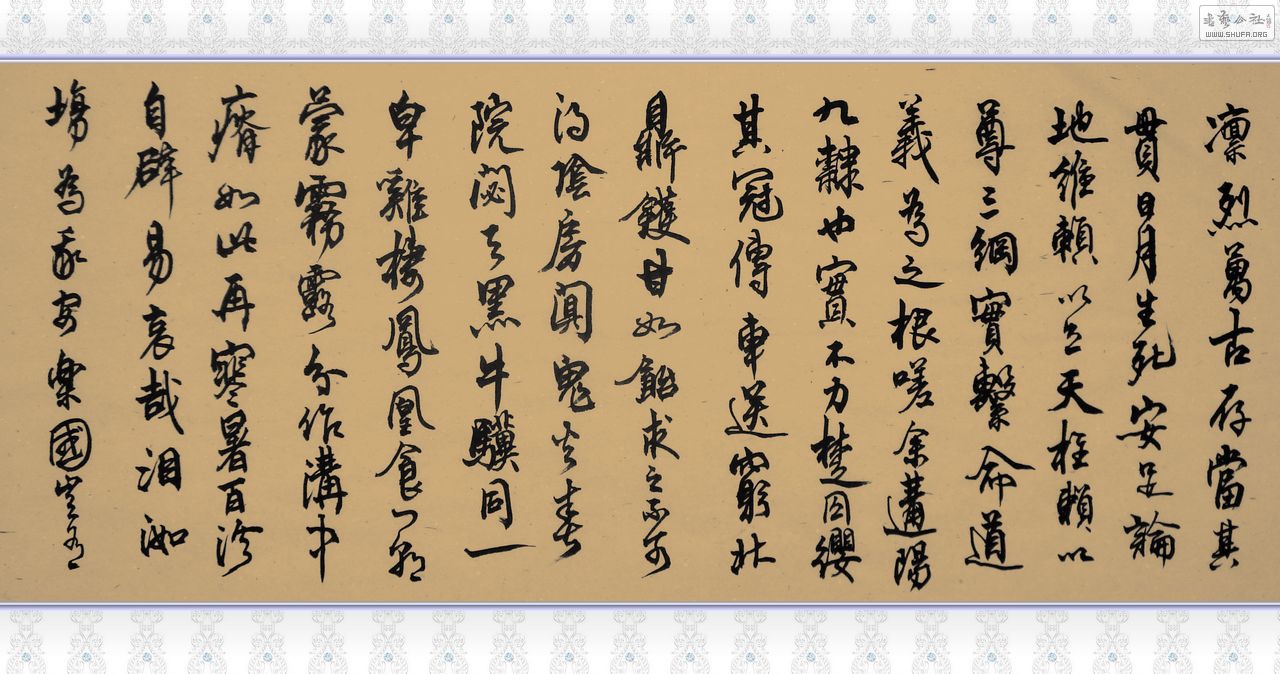 凛烈萬古存當其
貫日月生死安足論
地維賴以立天柱賴以
尊三綱實繫命道
義為之根嗟余遘陽
九隸也實不力楚囚纓
其冠傳車送窮北
鼎鑊甘如飴求之不可
得陰房闃鬼火春
院閟天黑牛驥同一
皁雞棲鳳凰食一朝
蒙霧露分作溝中
瘠如此再寒暑百沴
自辟易哀哉沮洳
場為我安樂國豈有
书艺公社
WWW.SHUFA.ORG